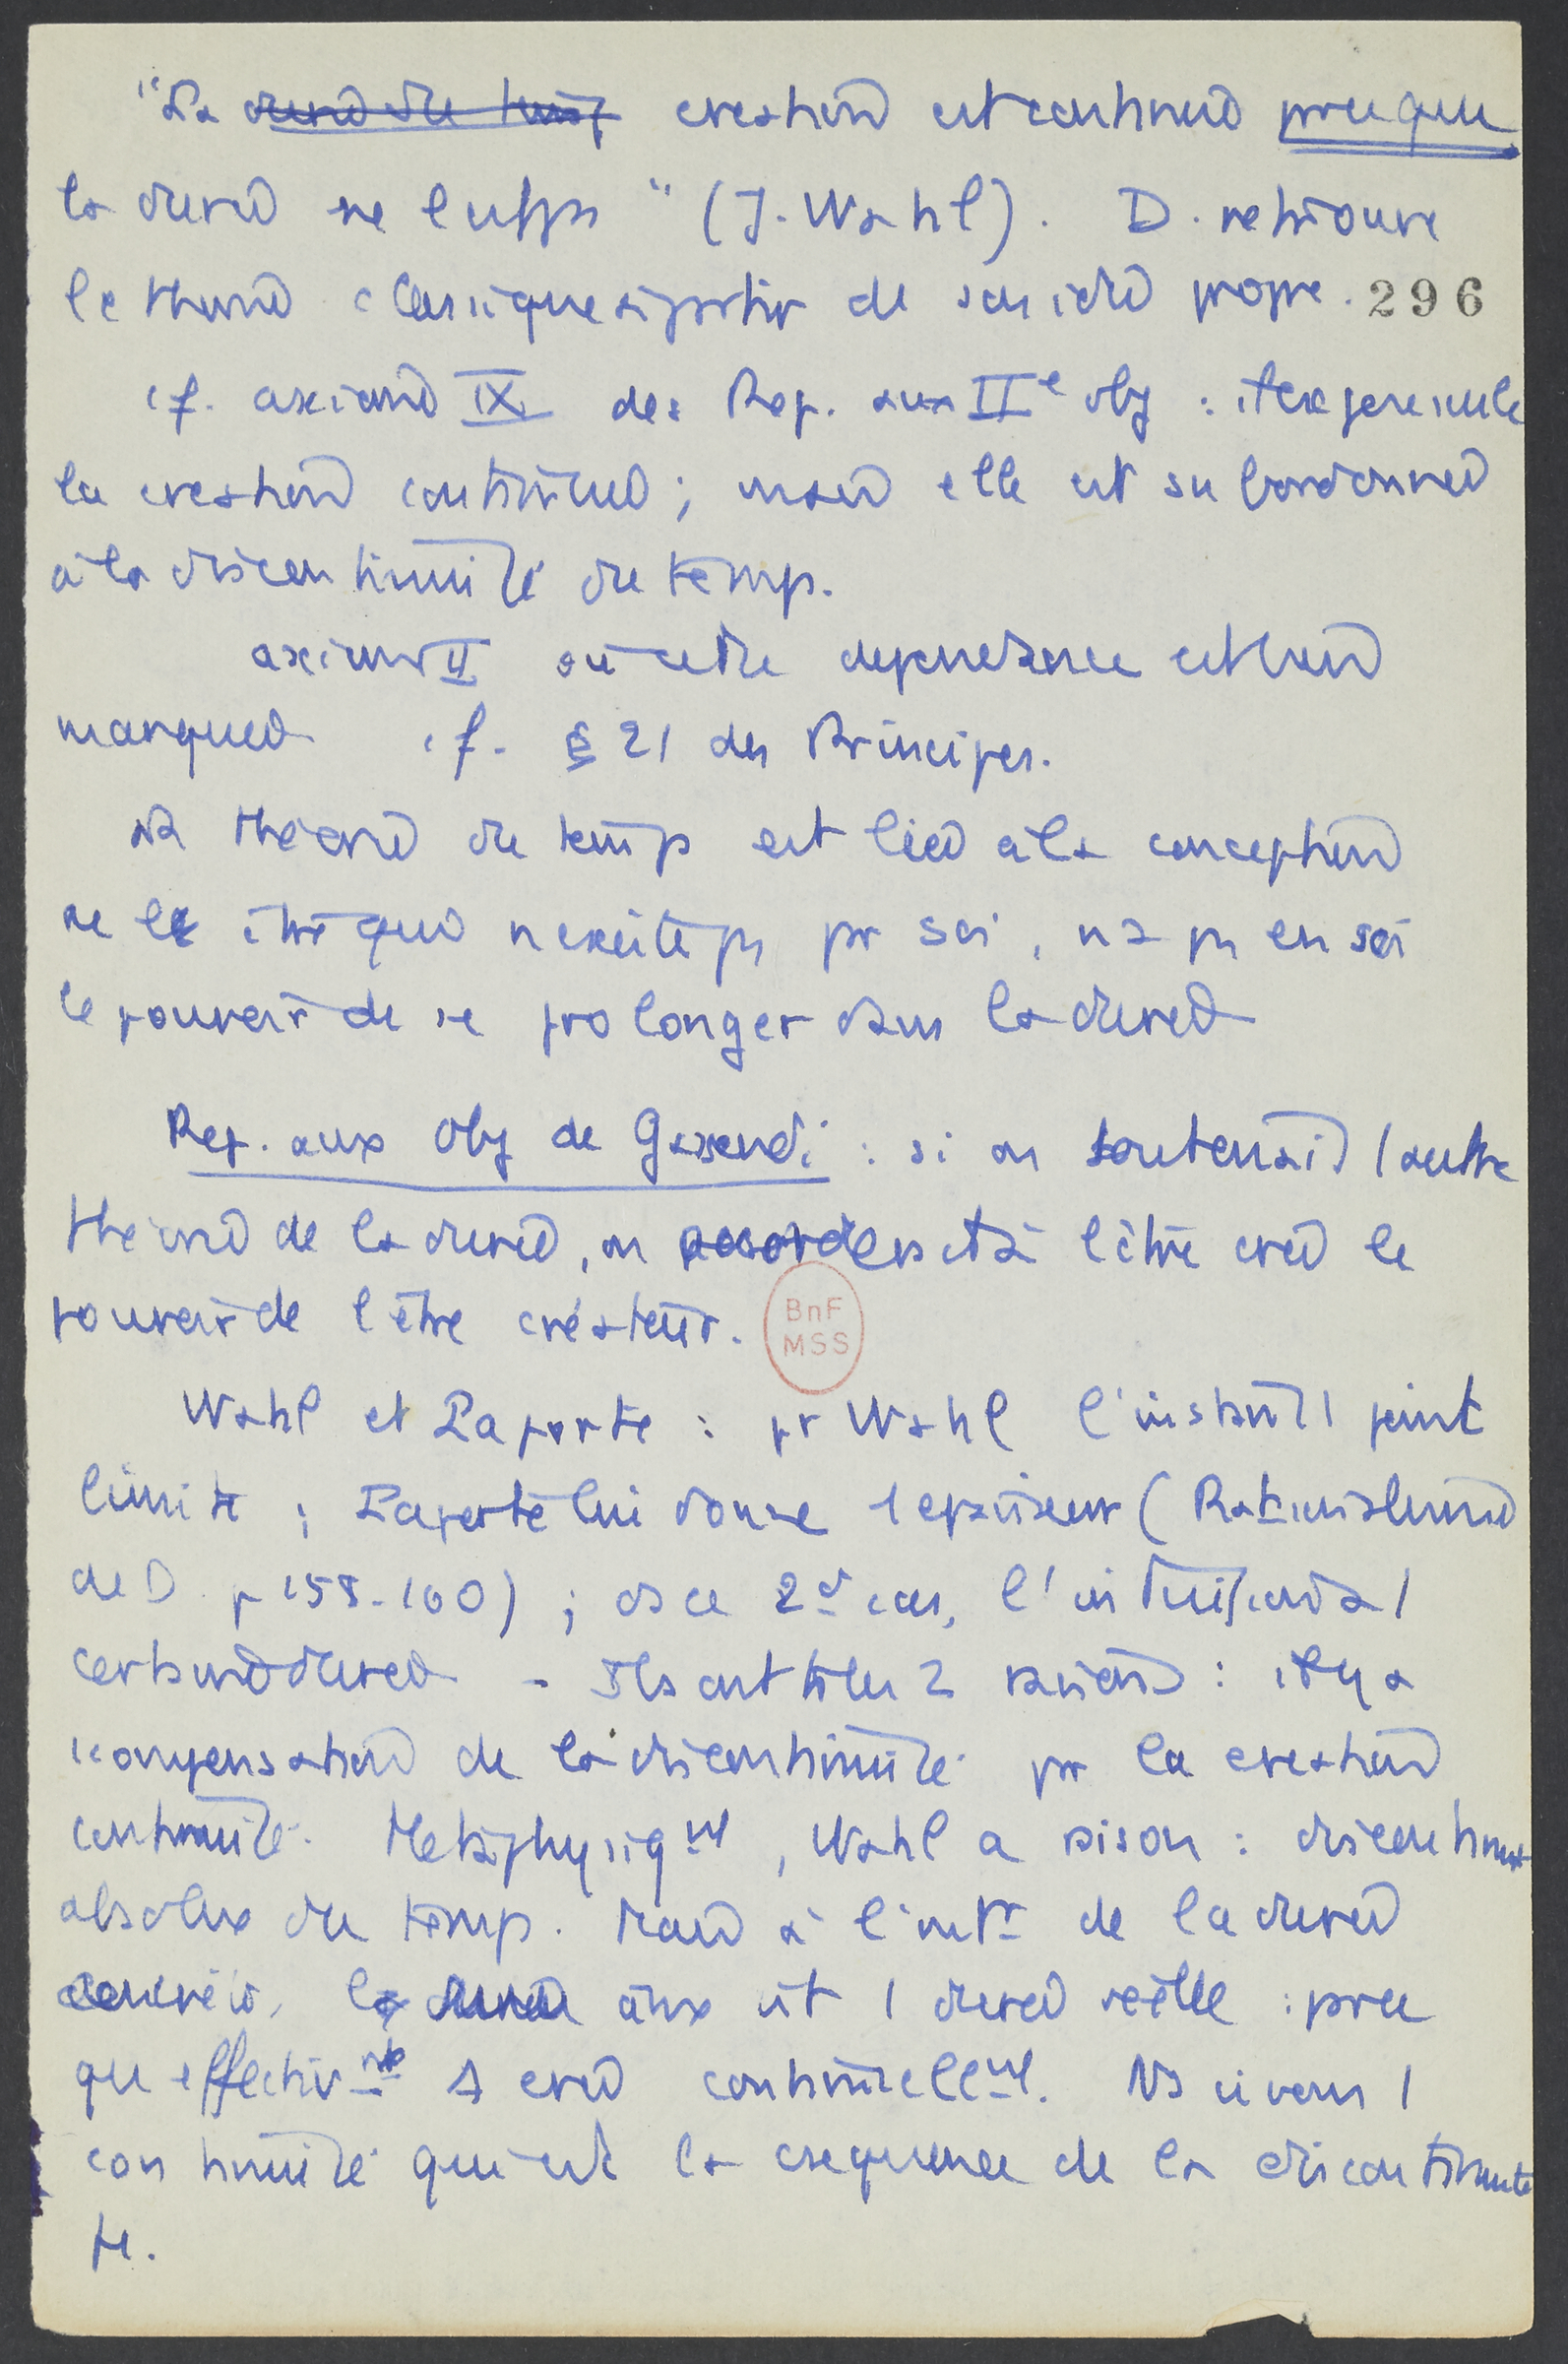 "La ~~durée du temps~~ création est continue parce que
la durée ne l'est pas" (J. Wahl). D. retrouve
la théorie classique à partir de son idée propre. 296
cf. axiome IX des Rep. aux IIe obj : il expose
la création continuée ; mais elle est subordonnée
à la discontinuité du temps.
axiome II où cette dépendance est bien
marquée cf. § 21 des Principes.
La théorie du temps est liée à la conception
de l'être qui n'existe pas par soi, n'a pas en soi
le pouvoir de se prolonger dans la durée
Rep. aux Obj de Gassendi : si on soutenait l'autre
théorie de la durée, on accorderait à l'être créé le
pouvoir de l'être créateur.
BnF
MSS
Wahl et Laporte : pr Wahl l'instant 1 point
limite ; Laporte lui donne 1 épaisseur (Rationalisme
de D. p 158-160) ; ds ce 2d cas, l'intuition a 1
certaine durée - Ils ont tous 2 raison : il y a
compensation de la discontinuité par la création
continuée. Métaphysiqnt, Wahl a raison : discontinuité
absolue du temps. Mais à l'intr de la durée
concrète, la durée aux est 1 durée réelle : parce
que effectivnt créé continuellent. Ns vivons 1
continuité qui est la csequence de la discontinuité
M.